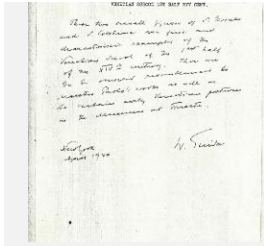 VENETIAN SCHOOL 1ST HALF XIV CENT.
These two small figures of S.
and S. are fine and
characteristic examples of the
Venetian School of the 1st half
of the XIV century. There are
to be noticed resemblance to
Maestro Paolo's works as well as
to certain early Venetian pictures
in the museum at Trieste.
New York
April 1940
W. Suida